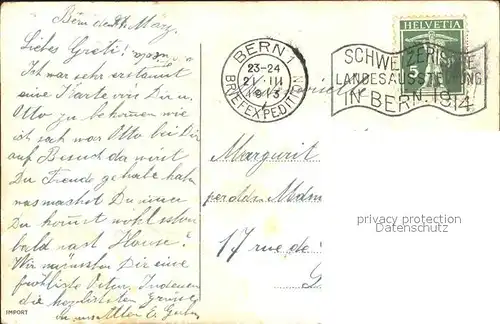 Bern den 21. März.
Liebes Greti!
Ich war sehr erstaunt
eine Karte von Dir u.
Otto zu bekommen wie
ich sah war Otto bei Dir
auf Besuch da wirst
Du Freude gehabt haben
was machst Du immer
Du kommst wohl schon
bald nach Hause?
Wir wünschen Dir eine
fröhliche Ostern, Indessen
die herzlichsten Grüsse
von uns Allen
IMPORT
BERN 1
23-24
21.III
1913
BRIEFEXPEDITION
HELVETIA
5
SCHWEIZERISCHE
LANDESAUSSTELLUNG
IN BERN.1914
Margurit
17 rue de
privacy protection
Datenschutz